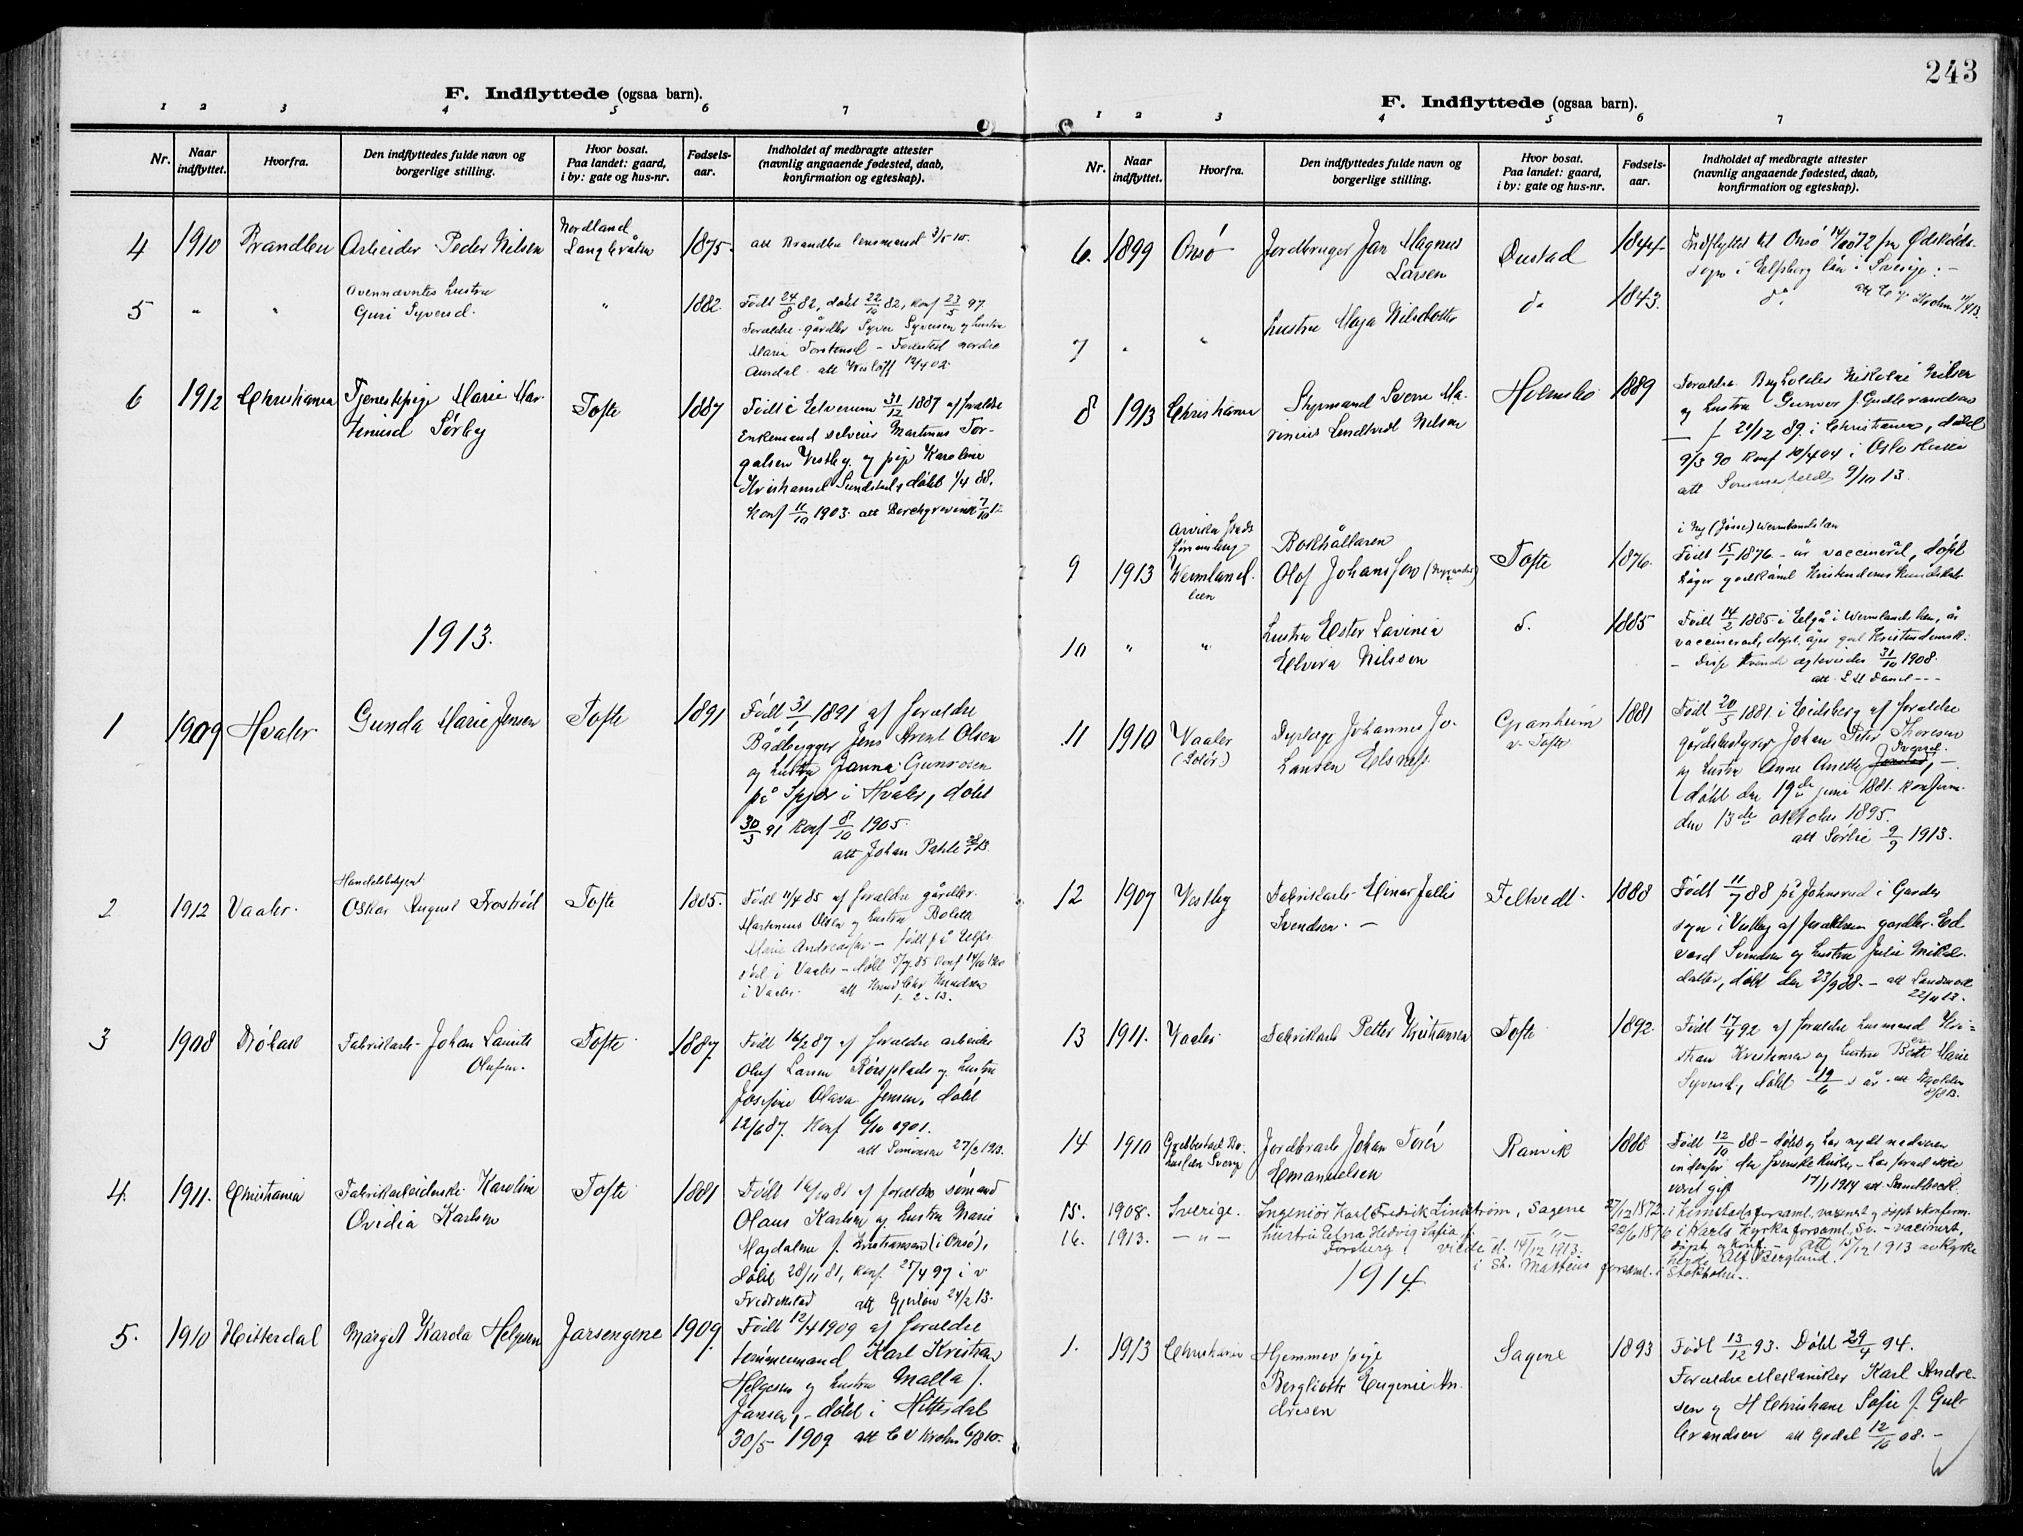 F. Indflyttede (ogsaa barn).
1 2 3 4 5 6 7
Nr.
Naar indflyttet.
Hvorfra.
Den indflyttedes fulde navn og
borgerlige stilling.
Hvor bosat.
Paa landet: gaard,
i by: gate og hus-nr.
Fødsels-
aar.
Indholdet af medbragte attester
(navnlig angaaende fødested, daab,
konfirmation og egteskap).
4 1910 Brandbu Arbeider Peder Nilsen Nordland 1875.
5 " " Ovennævntes hustru
Guri Syversd. " 1882 Født 24/8 82, døbt 22/10 82, konf 23/5 97
Forældre gårdbr Syver Syversen og hustru
Maria Torstensd - Fødested nordre
Aurdal.
6 1912 Christiania Tjenestepige Marie Mar-
tinusd Sørby Tofte 1887 Født i Elverum 31/12 1887 af foreldre
Enkemand selveier Martinus Tor-
galsen Vestby og pige Karoline
Kristiansd Sundstad, døbt 1/4 88.
Konf 11/10 1903. att Borchgrevink
1913.
1 1909 Hvaler Gunda Marie Jensen Tofte 1891 Født 31/1 1891 af foreldre
Bådbygger Jens Arent Olsen
og hustru Janna Gunrosen
på Spjær i Hvaler, døbt
30/3 91 konf 8/10 1905.
att Johan Pahle
2 1912 Vaaler. Handelsbetjent
Oskar August Frostrød Tofte 1885. Født 11/4 85 af foreldre gårdbr.
Martinius Olsen og hustru Bolette
Marie Andreasdtr - født på
i Vaaler - døbt 5/7 85 konf
i Vaaler. att Knud Chr Knudsen
1-2-13.
3 1908 Drøbak Fabrikarb. Johan Laurits
Olufsen. Tofte 1887. Født 16/2 87 af foreldre arbeider
Oluf Larsen Rørsplads og hustru
Josefine Olava Jensen, døbt
12/6 87. Konf 6/10 1901.
att Simonsen 27/2 1913.
4. 1911. Christiania Fabrikarbeiderske Karoline
Ovidia Karlsen Tofte 1881 Født 16/10 81 af foreldre sømand
Olaus Karlsen og hustru Marie
Magdalene f. Kristiansen (i Onsø),
døbt 28/11 81, konf 25/4 97 i v
Fredrikstad att Gjerløw 24/2 13.
5. 1910 Hitterdal Margit Karola Helgesen Jarsengene 1909. Født 12/4 1909 af foreldre
tømmermand Karl Kristian
Helgesen og hustru Malla f.
Jansen, - døbt i Hitterdal
30/5 1909 att C V Krohn 6/8 10.
243
F. Indflyttede (ogsaa barn).
1 2 3 4 5 6 7
Nr.
Naar
indflyttet.
Hvorfra.
Den indflyttedes fulde navn og
borgerlige stilling.
Hvor bosat.
Paa landet: gaard,
i by: gate og hus-nr.
Fødsels-
aar.
Indholdet af medbragte attester
(navnlig angaaende fødested, daab,
konfirmation og egteskap).
6. 1899 Onsø Jordbruger Jan Magnus
Larsen Øustad 1844 Indflyttet til Onsø 14/10 72 fra Ødskölds-
sogn i Elfsborg län i Sverige. -
7 " " hustru Maja Nilsdotter do 1843. do
8 1913 Christiania Styrmand Sverre Ma-
rinius Lundtvedt Nilsen Holmsbo 1889 Foreldre Nikolai Nilsen
og hustru Gunvor f. Gudbrandsen
- f 21/12 89 i Christiania, døbt
9/3 90 Konf 10/4 04 i Oslo kirke
att Sommerfeldt 9/10 13.
9 1913 Arvika
Wermland.
län Bokhållaren
Olof Johansson Tofte 1876. i Ny (Jösse) Wermlands län
Født 15/1 1876 - är vaccinerad, döpt
äger godkänd Kristendomskundskab
10 " " hustru Ester Lavinia
Elvira Nilsson d. 1885 Født 14/2 1885 i Elgå i Wermlands län, är
vaccinerad, döpt, äger god Kristendomsk.
- Disse tvende ægteviedes 31/10 1908.
11 1910 Vaaler
(Solør) Dyrlæge Johannes Jo-
hansen Elsness. Granheim
v. Tofte 1881 Født 20/5 1881 i Eidsberg af foreldre
Gårdsbestyrer Johan Peter Thoresen
og hustru Anne Anette
døbt den 19de juni 1881. konfirm.
den 13de oktober 1895.
att Sørlie 9/9 1913.
12 1907 Vestby Fabrikarb. Einar Jallis
Svendsen. - Feltvedt. 1888 Født 11/7 88 på Johnsrud i Garder
sogn i Vestby af foreldrene gardbr. Ed-
vard Svendsen og hustru Julie Mikkels-
datter, døbt den 23/9 88. - att Landmark
22/11 13.
13 1911. Vaaler Fabrikarb Petter Kristiansen Tofte 1892. Født 17/4 92 af foreldre husmand Kri-
stian Kristensen og hustru Berte Marie
Syversd, døbt 19/6 s år. att Molden
14 1910 Grebbestad Bo-
huslän Sverig Jordbrarb Johan Torér
Emanuelsen Ramvik 1888 Født 12/10 88 - døbt og har nydt nadveren
indenfor den svenske kirke, - har forud ikke
været gift 17/1 1914 att Sandbeck.
15. 1908. Sverige. Ingeniør Karl Fredrik Lindstrøm, Sagene 27/12 1872 i Kimstads forsaml. vaksinert og døpt og konfirm.
16. 1913. - " - hustru Edna Hedvig Sofia f.
Forsberg - " - 22/6 1876 i Karls Kyrka forsaml. Sv. - vaccinert,
døpt og konf. - att 15/12 1913 av Kyrko
herde Alf Berglund.
viede d. 14/12 1913.
i St. Matteus forsaml. i Stokholm.
1914.
1. 1913 Christiania Hjemmev. pige
Bergliotte Eugenie An-
dresen Sagene 1893 Født 13/12 93. Døbt 29/4 94.
Foreldre Mekaniker Karl Andre-
sen og H Christiane Sofie f. Gul-
brandsen att Godal 12/10 08. -